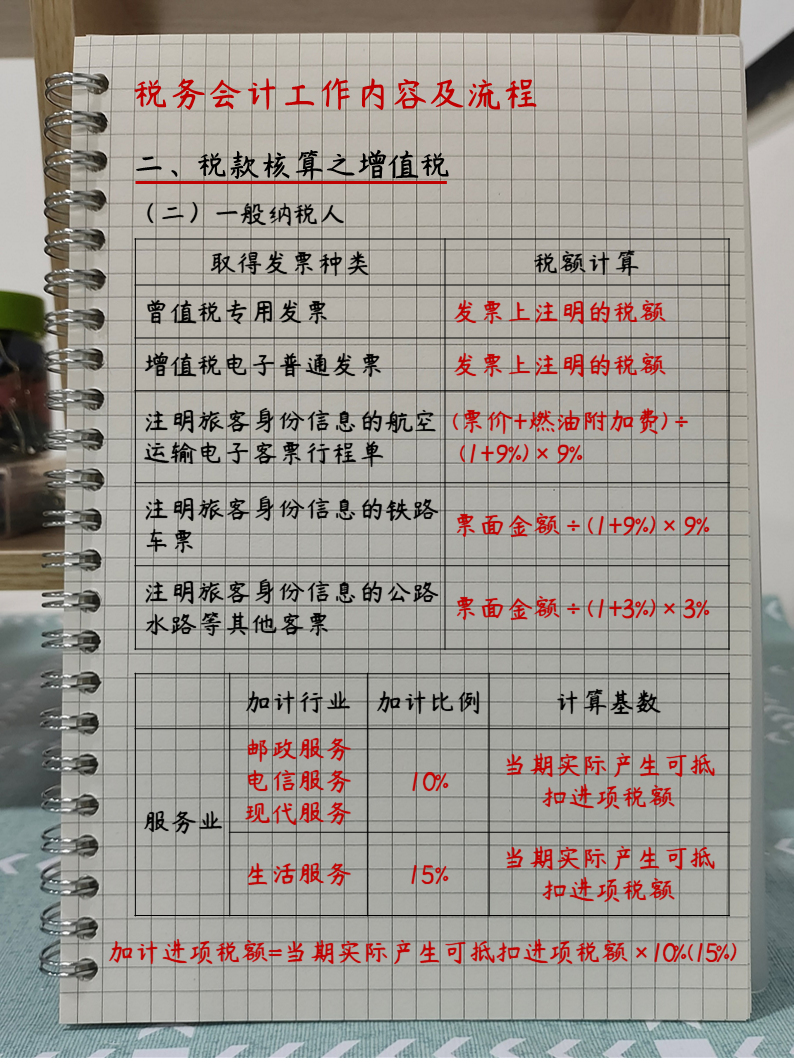 税务会计工作内容及流程
二、税款核算之增值税
（二）一般纳税人
取得发票种类 税额计算
曾值税专用发票 发票上注明的税额
增值税电子普通发票 发票上注明的税额
注明旅客身份信息的航空 (票价+燃油附加费)÷
运输电子客票行程单 (1+9%)×9%
注明旅客身份信息的铁路
车票
票面金额÷(1+9%)×9%
注明旅客身份信息的公路
水路等其他客票
票面金额÷(1+3%)×3%
加计行业 加计比例 计算基数
服务业
邮政服务
电信服务
现代服务
10%
当期实际产生可抵
扣进项税额
生活服务
15%
当期实际产生可抵
扣进项税额
加计进项税额=当期实际产生可抵扣进项税额×10%(15%)